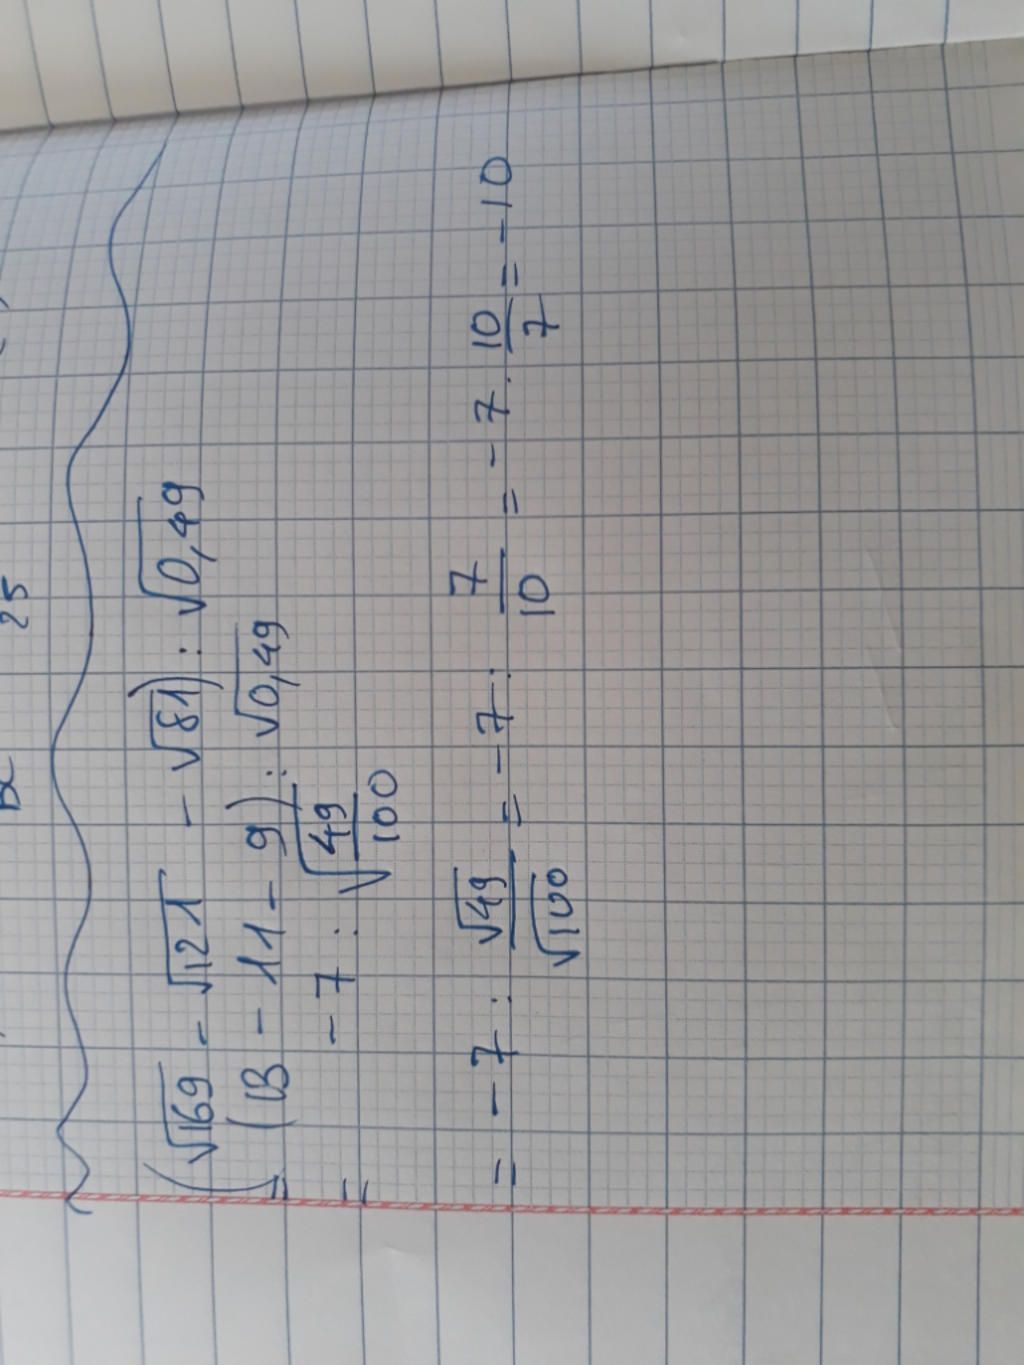 25
(√169 - √121 - √81) : √0,49
= (13 - 11 - 9) : √0,49
= - 7 : √(49/100)
= - 7 : √49/√100 = - 7 : 7/10 = - 7 · 10/7 = - 10